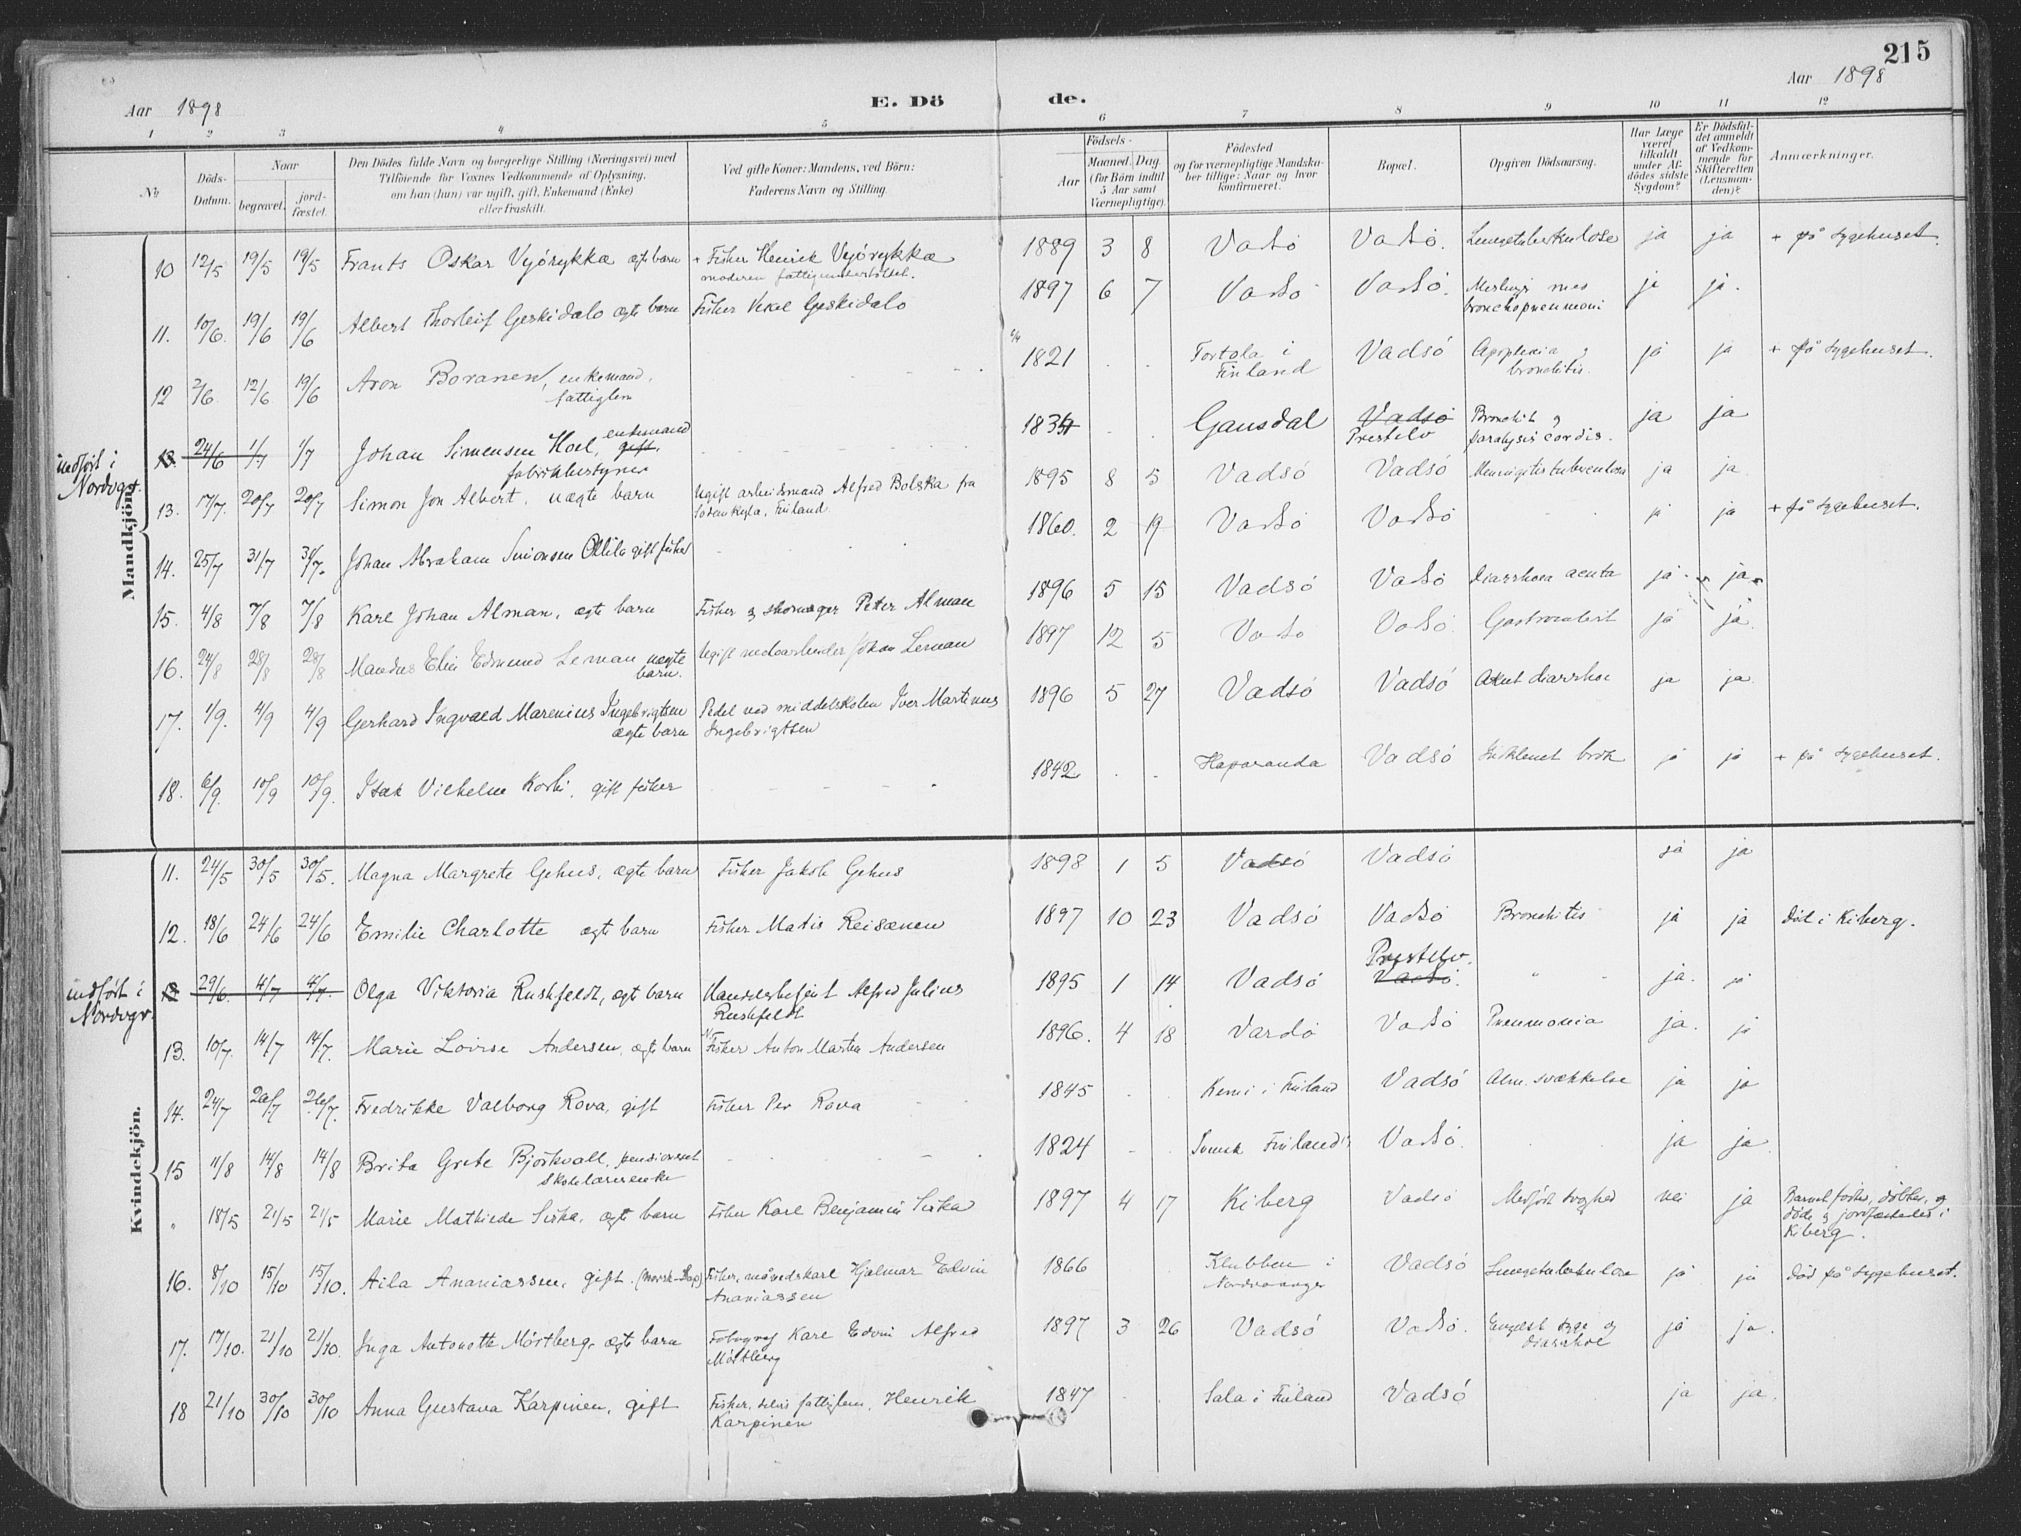 215
Aar 1898 E. Dö de. Aar 1898
1 2 3 4 5 6 7 8 9 10 11 12
No
Döds-Datum.
Naar
begravet.
jordfæstet.
Den Dödes fulde Navn og borgerlige Stilling (Næringsvei) med
Tilföiende for Voxnes Vedkommende af Oplysning,
om han (hun) var ugift, gift, Enkemand (Enke)
eller fraskilt.
Ved gifte Koner: Mandens, ved Börn:
Faderens Navn og Stilling.
Födsels-
Aar
Maaned. Dag.
(for Börn indtil
5 Aar samt
Værnepligtige).
Födested
og for værnepligtige Mandskaber
tillige: Naar og hvor
konfirmeret.
Bopæl.
Opgiven Dödsaarsag.
Har Læge
været
tilkaldt
under Afdödes
sidste
Sygdom?
Er Dödsfaldet
anmeldt
af Vedkommende
for
Skifteretten
(Lensmanden)?
Anmærkninger.
Mandkjön.
10 12/5 19/5 19/5 Frants Oskar Vyörykkæ ægte barn + Fisker Henrik Vyörykkæ 1889 3 8 Vadsö Vadsö. Lungetuberkulose ja ja + på sygehuset.
moderen fattigunderstöttet.
11. 10/6. 19/6 19/6 Albert Thorleif Geskidalo ægte barn Fisker Geskidalo 1897 6 7 Vadsö Vadsö. Meslinger med ja ja.
bronchopneumoni
12 2/6 12/6 19/6 Aron Boranen, enkemand, 1821 Tortola i Vadsö Apoplexia & ja ja + på sygehuset.
fattiglem Finland bronchitis.
indfört i
Nordvgr.
13. 24/6 1/7 1/7 Johan Simensen Hoel, enkemand gift, 1834 Gausdal Vadsö Bronchit & ja ja
fabrikbestyrer Prestelv paralysis cordis.
13. 17/7. 20/7 20/7 Simon Jon Albert, uægte barn Ugift arbeidsmand Alfred Bolska fra 1895 8 5 Vadsö Vadsö Meningitis tuberculosa ja ja
Sodenkyla, Finland
14. 25/7 31/7 31/7. Johan Abraham Simonsen gift fisker 1860. 2 19 Vadsö Vadsö ja ja + på sygehuset.
15. 4/8 7/8 7/8 Karl Johan Alman, ægte barn Fisker & skomager Peter Alman 1896 5 15 Vadsö Vadsö Diarrhoea acuta ja ja
16. 24/8 28/8 28/8 Mandus Elis Edmund Leman uægte Ugift Johan Leman 1897 12 5 Vadsö Vadsö. Gastroenterit ja ja
barn.
17. 1/9. 4/9 4/9 Gerhard Ingvald Marenius Ingebrigtsen Pedel ved middelskolen Iver Martinus 1896 5 27 Vadsö Vadsö Akut diarrhoe ja ja
ægte barn Ingebrigtsen
18. 6/9. 10/9 10/9. Isak Vilhelm Korbi, gift fisker 1842 Haparanda Vadsö Inklemt brok ja ja + på sygehuset.
Kvindekjön.
11. 24/5 30/5 30/5. Magna Margrete Gehus, ægte barn Fisker Jakob Gehus 1898 1 5 Vadsö Vadsö ja ja
12. 18/6 24/6 24/6 Emilie Charlotte ægte barn Fisker Matis Reisænen 1897 10 23 Vadsö Vadsö Bronchitis ja ja Död i Kiberg.
indfört i
Nordvgr.
13 29/6. 4/7 4/7. Olga Viktoria Rushfeldt, ægte barn Handelsbetjent Alfred Julius 1895 1 14 Vadsö Prestelv. Vadsö. " ja. ja
Rushfeldt
13. 10/7. 14/7 14/7. Marie Lovise Andersen, ægte barn Fisker Anton Martin Andersen 1896. 4 18 Vardö Vadsö Pneumonia ja. ja
14. 24/7 28/7 28/7. Fredrikke Valborg Rova, gift Fisker Per Rova 1845 Kemi i Finland Vadsö Alm. svækkelse ja ja
15 11/8 14/8 14/8 Brita Grete Björkvall, pensioneret 1824 Svensk Finland Vadsö. ja ja
skolelærerenke
" 18/5 21/5 21/5 Marie Mathilde Sirka, ægte barn Fisker Karl Benjamin Sirka 1897 4 17 Kiberg Vadsö Medfödt svaghed nei ja Barnet födtes, döbtes, og
döde & jordfæstedes i
Kiberg.
16. 8/10 15/10 15/10. Aila Ananiassen, gift. (norsk-lap) Fisker, månedskarl Hjalmar Edvin 1866 Klubben i Vadsö Lungetuberkulose ja ja Död på sygehuset.
Ananiassen Nordvaranger
17. 17/10. 21/10 21/10. Inga Antonette Mörtberg, ægte barn Fotograf Karl Edvin Alfred 1897 3 26 Vadsö Vadsö. Engelsk syge og ja ja.
Mörtberg diarrhoe
18 21/10 30/10 30/10 Anna Gustava Karpinen, gift Fisker, delvis fattiglem, Henrik 1847 Sala i Finland Vadsö ja ja.
Karpinen